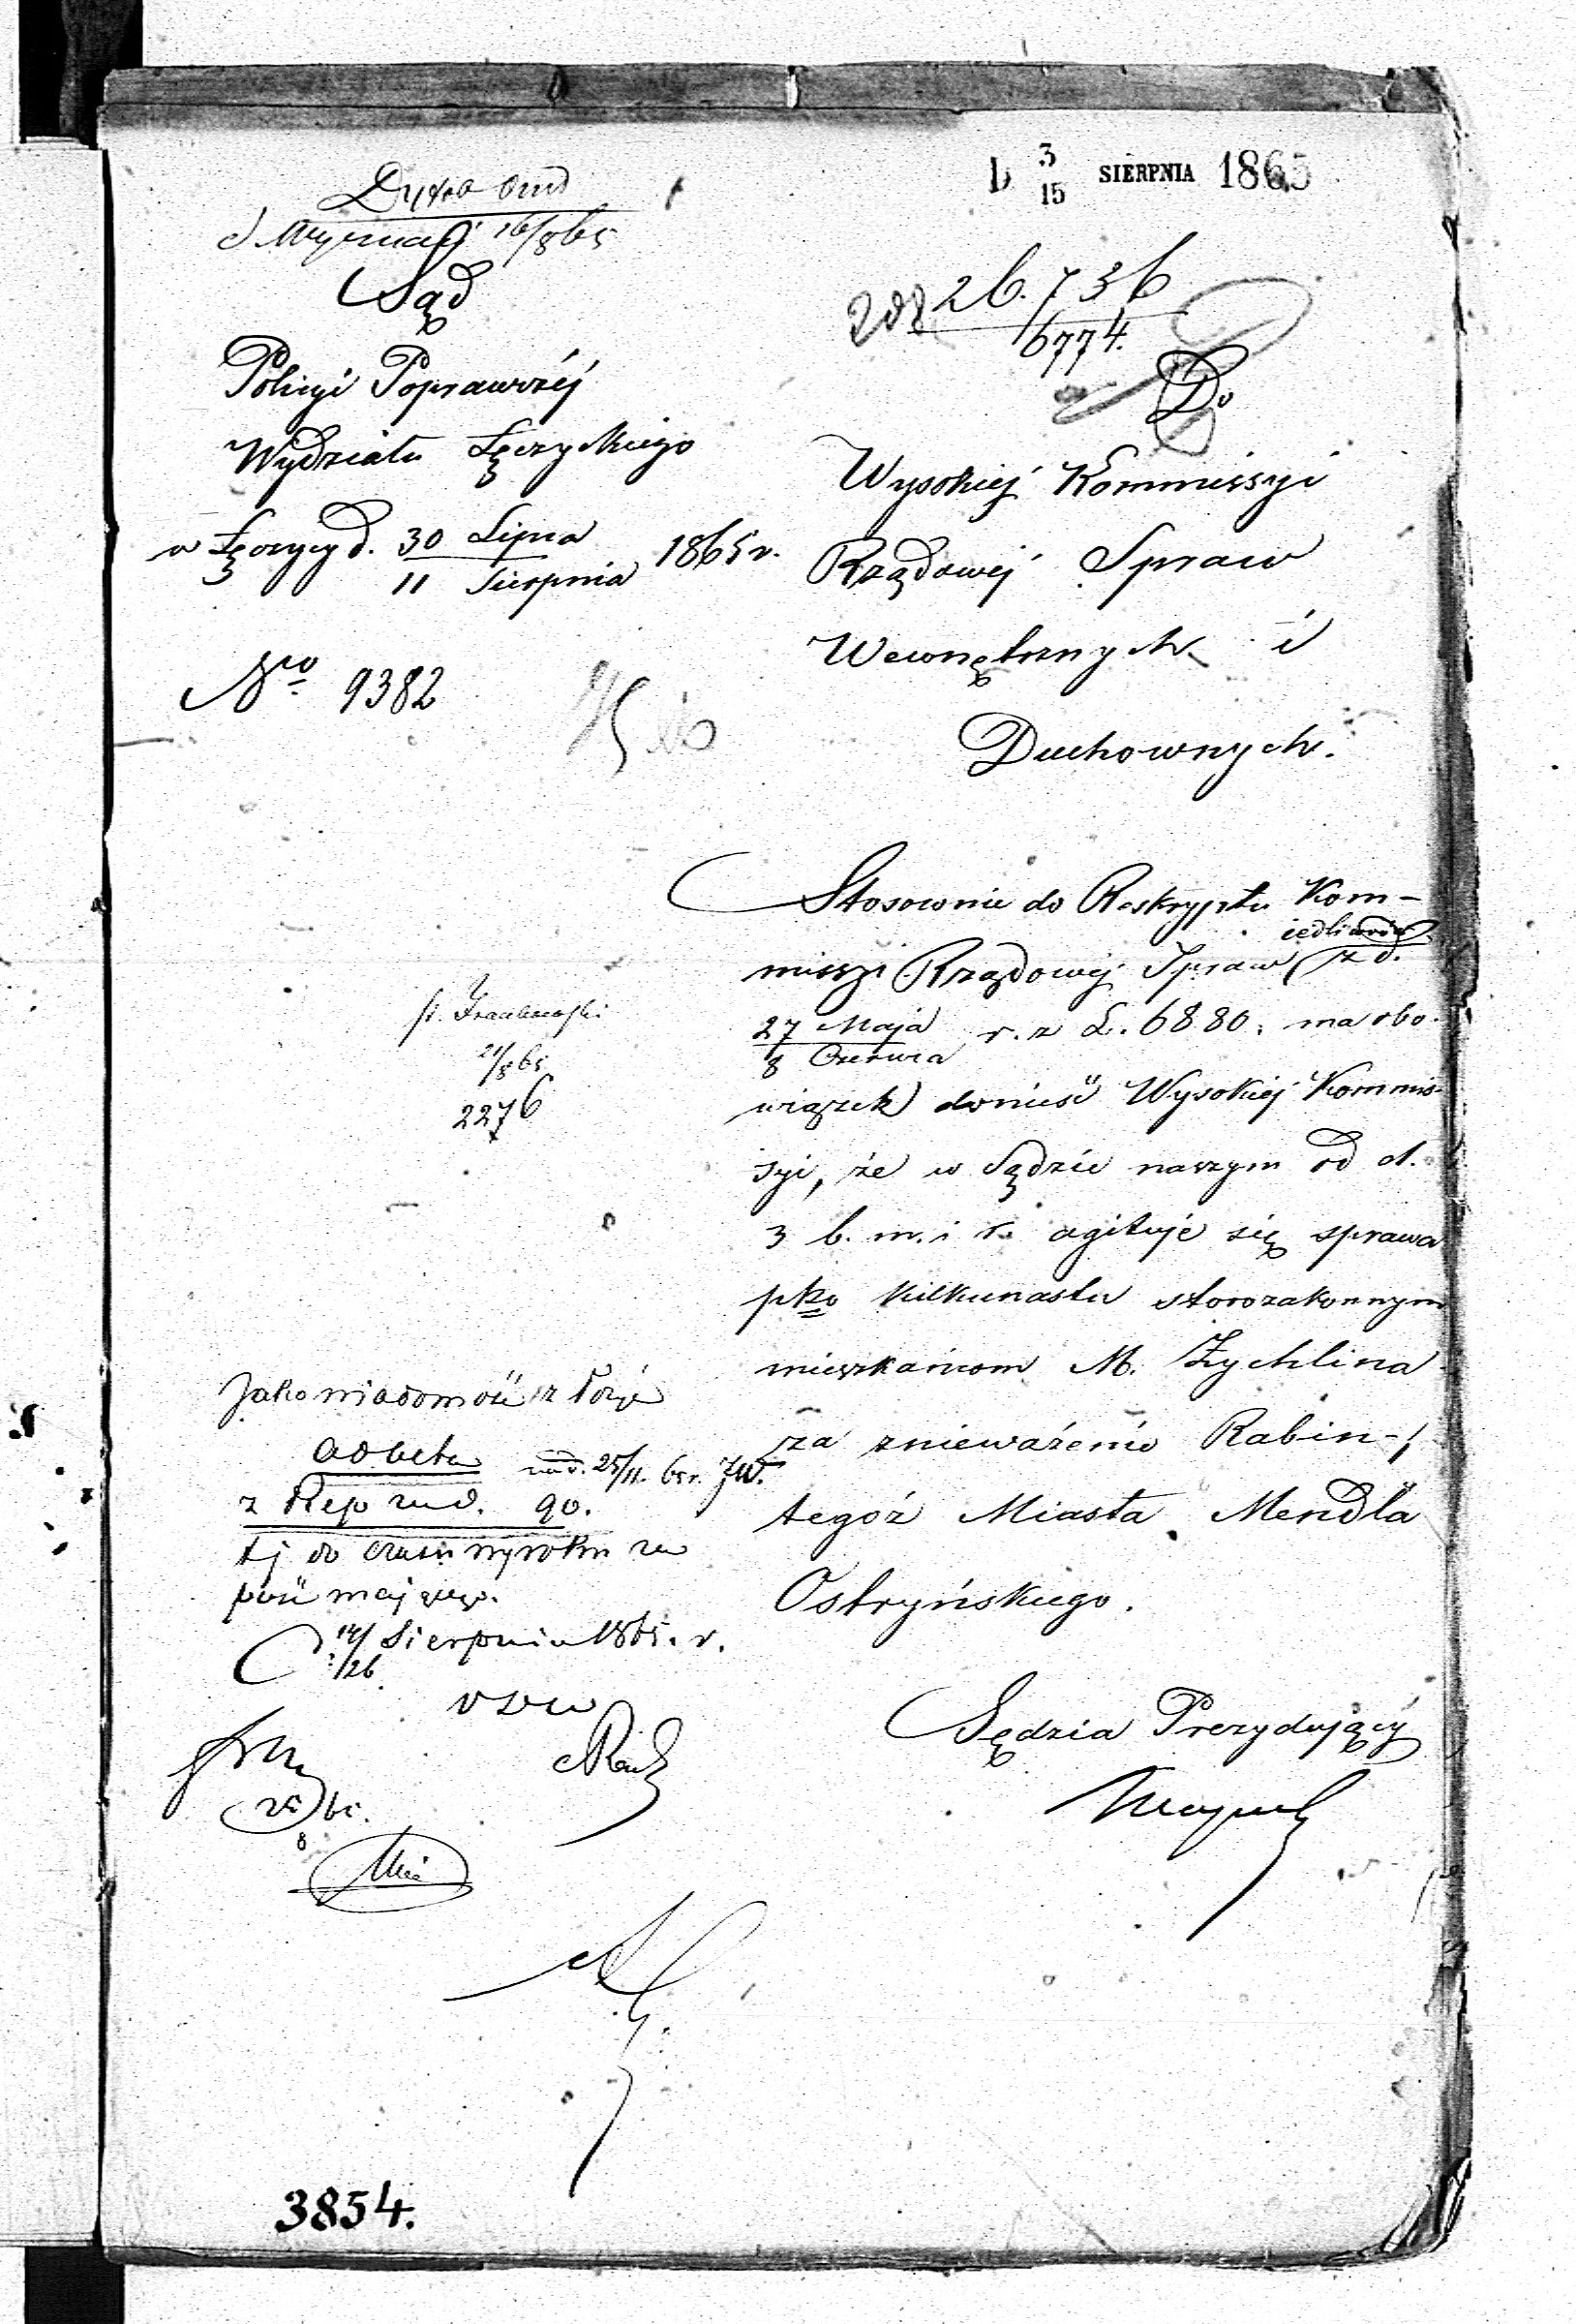 D 3/15 SIERPNIA 1865
16/8 65
Sąd
Policyi Poprawczéj
Wydziału Łęczyckiego
w Łęczycy d. 30 Lipca / 11 Sierpnia 1865 r.
Nro 9382
26.736
6774.
Do
Wysokiej Kommissyi
Rządowéj Spraw
Wewnętrznych i
Duchownych.
Stosownie do Reskryptu Kom-
missyi Rządowéj Spraw z d.
27 Maja / 8 Czerwca r. z L. 6880. ma obo-
wiązek donieść Wysokiéj Kommis-
syi, że w Sądzie naszym od d.
3 b. m. i r. agituje się sprawa
pko kilkunastu starozakonnym
mieszkańcom M. Żychlina
za znieważenie Rabina
tegoż Miasta Mendla
Ostryńskiego.
Sędzia Prezydujący
21/8 65
2276
Jako wiadomość złożyć
ad acta
z Rep 90.
tj do czasu wyroku za
paść mającego.
D. 14/26 Sierpnia 1865. r.
3854.